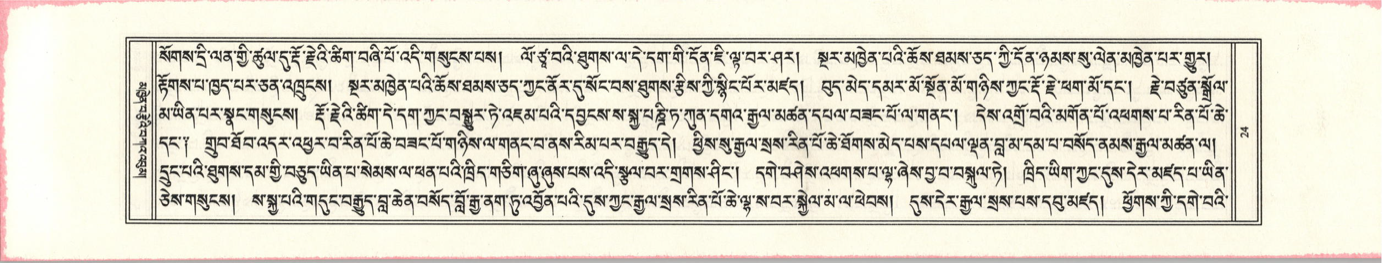 སོགས་དྲི་ལན་གྱི་ཚུལ་དུ་རྡོ་རྗེའི་ཚིག་བཞི་པོ་འདི་གསུངས་པས། ལོ་ཙཱ་བའི་ཐུགས་ལ་དེ་དག་གི་དོན་ཇི་ལྟ་བར་ཤར། སྔར་མཁྱེན་པའི་ཆོས་ཐམས་ཅད་ཀྱི་དོན་ཉམས་སུ་ལེན་མཁྱེན་པར་གྱུར།
རྟོགས་པ་ཁྱད་པར་ཅན་འཁྲུངས། སྔར་མཁྱེན་པའི་ཆོས་ཐམས་ཅད་ཀྱང་ནོར་དུ་སོང་བས་ཐུགས་རྩིས་ཀྱི་སྙིང་པོར་མཛད། བུད་མེད་དམར་མོ་སྔོན་མོ་གཉིས་ཀྱང་རྡོ་རྗེ་ཕག་མོ་དང་། རྗེ་བཙུན་སྒྲོལ་
མ་ཡིན་པར་སྣང་གསུངས། རྡོ་རྗེའི་ཚིག་དེ་དག་ཀྱང་བསྒྱུར་ཏེ་འཇམ་པའི་དབྱངས་ས་སྐྱ་པཎྜི་ཏ་ཀུན་དགའ་རྒྱལ་མཚན་དཔལ་བཟང་པོ་ལ་གནང་། དེས་འགྲོ་བའི་མགོན་པོ་འཕགས་པ་རིན་པོ་ཆེ་
དང་། གྲུབ་ཐོབ་འདར་འཕྱར་བ་རིན་པོ་ཆེ་བཟང་པོ་གཉིས་ལ་གནང་བ་ནས་རིམ་པར་བརྒྱུད་དེ། ཕྱིས་སུ་རྒྱལ་སྲས་རིན་པོ་ཆེ་ཐོགས་མེད་པས་དཔལ་ལྡན་བླ་མ་དམ་པ་བསོད་ནམས་རྒྱལ་མཚན་ལ།
དྲུང་པའི་ཐུགས་དམ་གྱི་བཅུད་ཡིན་པ་སེམས་ལ་ཕན་པའི་ཁྲིད་གཅིག་ཞུ་ཞུས་པས་འདི་སྩལ་བར་གྲགས་ཤིང་། དགེ་བཤེས་འཕགས་པ་ལྷ་ཞེས་བྱ་བ་བསྐུལ་ཏེ། ཁྲིད་ཡིག་ཀྱང་དུས་དེར་མཛད་པ་ཡིན་
ཅེས་གསུངས། ས་སྐྱ་པའི་གདུང་བརྒྱུད་བླ་ཆེན་བསོད་བློ་རྒྱ་ནག་ཏུ་འབྱོན་པའི་དུས་ཀྱང་རྒྱལ་སྲས་རིན་པོ་ཆེ་ལྷ་ས་བར་སྐྱེལ་མ་ལ་ཕེབས། དུས་དེར་རྒྱལ་སྲས་པས་དབུ་མཛད། ཕྱོགས་ཀྱི་དགེ་བའི་
24